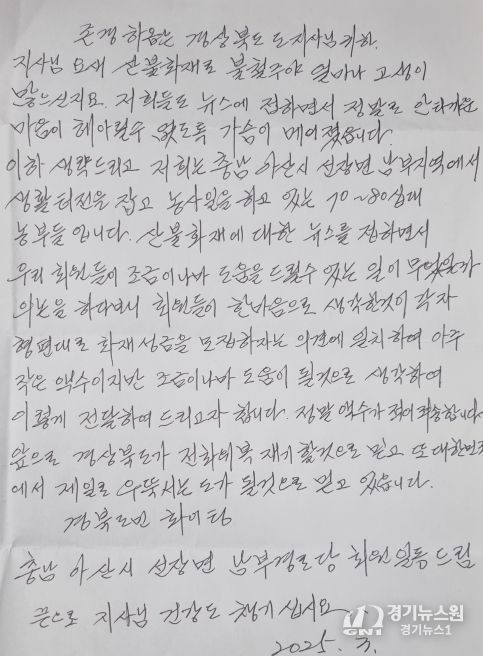 존경하옵는 경상북도 도지사님 귀하.
지사님 요새 산불화재로 불철주야 얼마나 고생이
많으신지요. 저희들도 뉴스에 접하면서 정말로 안타까운
마음이 헤아릴수 없도록 가슴이 메어졌습니다.
이하 생략드리고 저희는 충남 아산시 선장면 남부지역에서
생활터전을 잡고 농사일을 하고 있는 70~80십대
농부들 입니다. 산불화재에 대한 뉴스를 접하면서
우리 회원들이 조금이나마 도움을 드릴수 있는 일이 무엇일까
의논을 하다보니 회원들이 한마음으로 생각한것이 각자
형편대로 화재성금을 모집하자는 의견에 일치하여 아주
작은 액수이지만 조금이나마 도움이 될것으로 생각하여
이렇게 전달하여 드리고자 합니다. 정말 액수가 적어 죄송합니다.
앞으로 경상북도가 전화위복 재기할것으로 믿고 또 대한민국
에서 제일로 우뚝서는 도가 될것으로 믿고 있습니다.
경북도민 화이팅
충남 아산시 선장면 남부경로당 회원일동 드림
끝으로 지사님 건강도 챙기십시요
2025. 3.
GN1 경기뉴스원
경기뉴스1